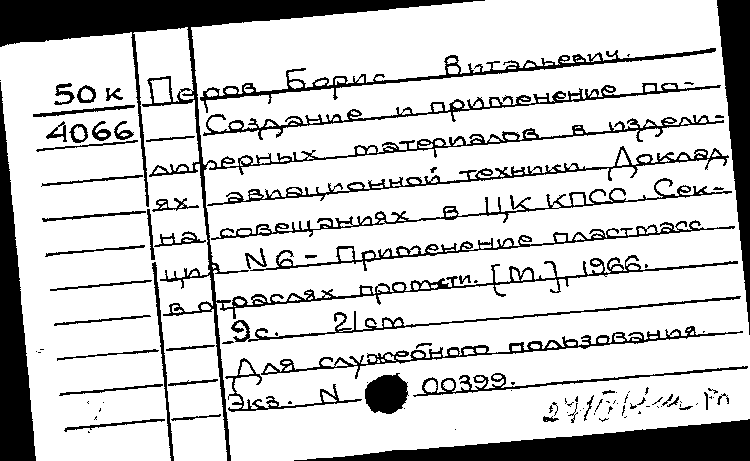 50к Петров, Борис Витальевич.
4066 Создание и применение по-
лимерных материалов в издели-
ях авиационной техники. Доклад
на совещаниях в ЦК КПСС. Сек-
ция N6 - Применение пластмасс
в отраслях пром-сти. [М.], 1966.
9с. 21см.
Для служебного пользования.
Экз. N 00399.